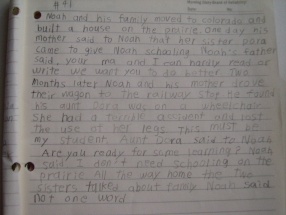 #41
Noah and his family moved to colorado and
built a house on the prairie. One day his
Mother said to Noah that her sister Dora
came to give Noah schooling Noah's Father
said, your ma and I can hardly read or
write we want you to do better Two
Months later Noah and his mother drove
their wagon to the railway Stop he found
his aunt Dora was on a wheelchair
She had a terrible accident and lost
the use of her legs This must be
my student Aunt Dora said to Noah
Are you ready for some learning? Noah
said I don't need schooling on the
prairie All the way home the Two
sisters talked about family Noah said
Not one word